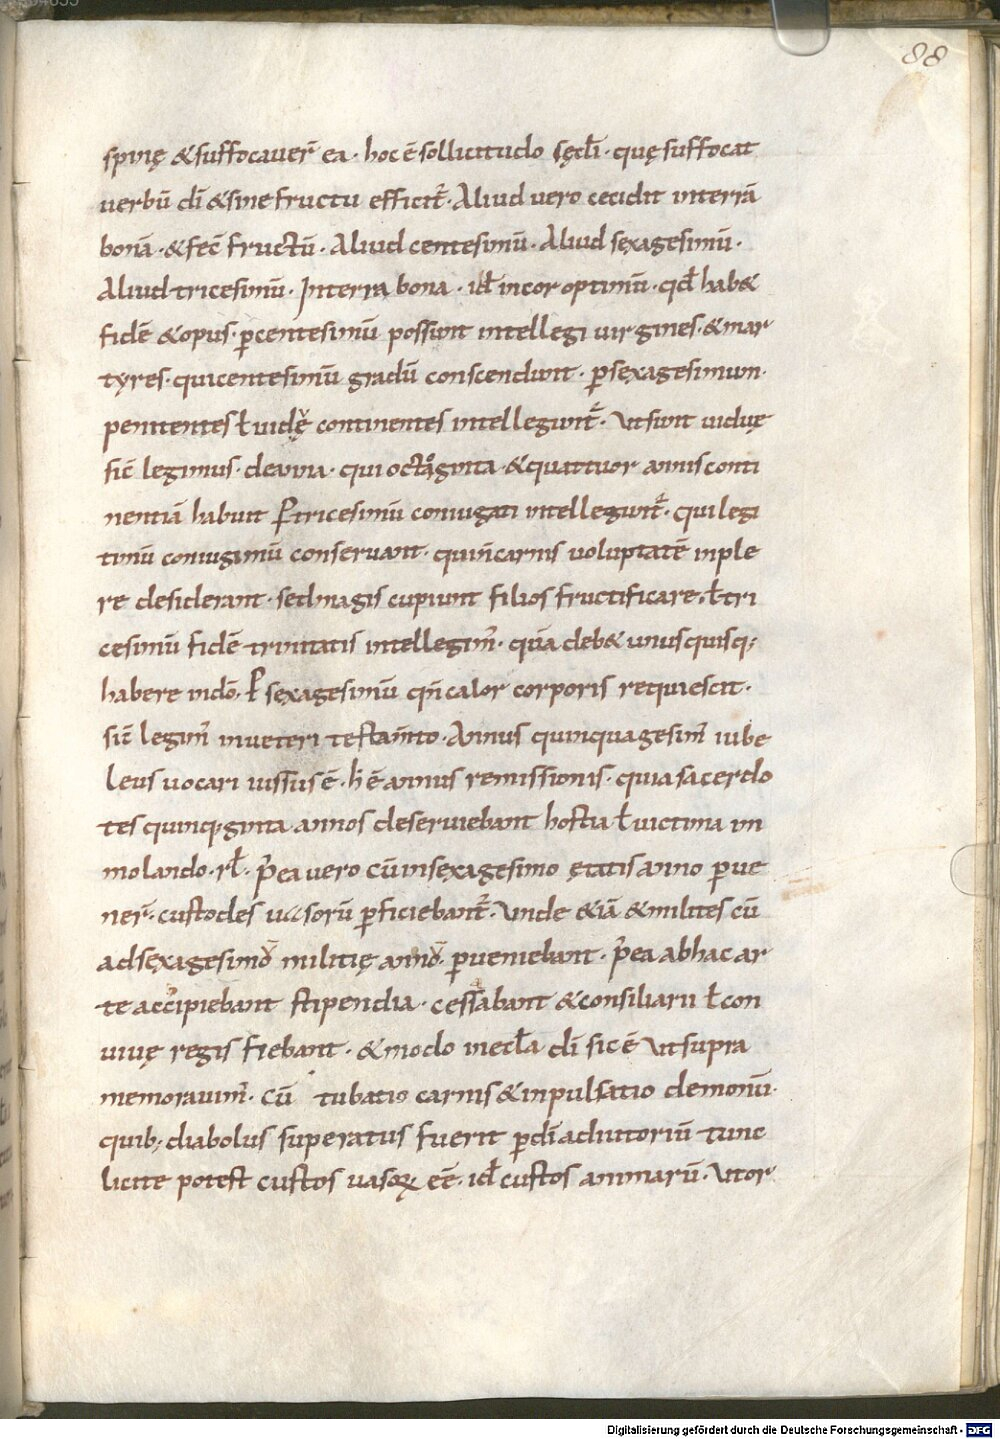 88
spinę &suffocauer̄ ea · hoc ē sollicitudo sęcl̄i · quę suffocat
uerbū dī &sine fructu efficit᷑ · Aliud uero cecidit interrā
bonā · &fec̄ fructū · Aliud centesimū · Aliud sexagesimū ·
Aliud tricesimū · Interra bona · id̄ incor optimū · qd̄ hab&
fidē &opus · ꝑcentesimū possunt intellegi uirgines · &mar
tyres · quicentesimū gradū conscendunt · ꝑsexagesimum ·
penitentes ł uidę continentes intellegunt᷑ · Ut sunt uiduę
sic̄ legimus · deanna · qui octoginta · &quattuor annis conti
nentiā habuit Ꝑtricesimū coniugati intellegunt᷑ · qui legi
timū coniugiū conseruant · quin̄carnis uoluptatē inple
re desiderant · sedmagis cupiunt filios fructificare · ł tri
cesimū fidē trinitatis intellegim᷒ · quā deb& unusquisq;
habere indō · Ꝑ sexagesimū qn̄calor corporis requiescit ·
sic̄ legim᷒ inueteri testam̄to · Annus quinquagesim᷒ iube
leus uocari iussus ē · h̄ ē annus remissionis · quia sacerdo
tes quinq;ginta annos deseruiebant hostia ł uictima im
molando · rł · p̄ea uero cūinsexagesimo ętatis anno ꝑue
ner̄ · custodes uasorū ꝑficiebant᷑ · Unde &iā &milites cū
adsexagesimō militię annō ꝑueniebant · p̄ea abhac ar
te accipiebant stipendia · cessabant &consiliarii ł con
uiuę regis fiebant · &modo inecl̄a dī sic ē Ut supra
memorauim᷒ · cū tubatio carnis &inpulsatio demonū ·
quib; diabolus superatus fuerit ꝑdīadiutoriū tunc
licite potest custos uasoꝝ eē · id̄ custos animarū · Utor
Digitalisierung gefördert durch die Deutsche Forschungsgemeinschaft - DFG